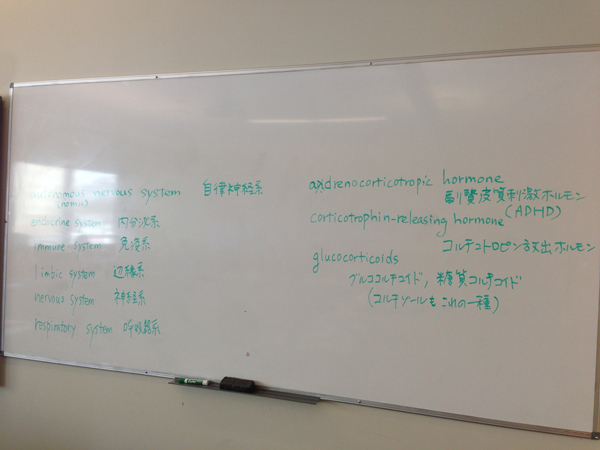 autonomous nervous system 自律神経系
(nomic)
endocrine system 内分泌系
immune system 免疫系
limbic system 辺縁系
nervous system 神経系
respiratory system 呼吸器系
adrenocorticotropic hormone
副腎皮質刺激ホルモン
(ADHD)
corticotrophin-releasing hormone
コルチコトロピン放出ホルモン
glucocorticoids
グルココルチコイド, 糖質コルチコイド
(コルチゾールもこれの一種)